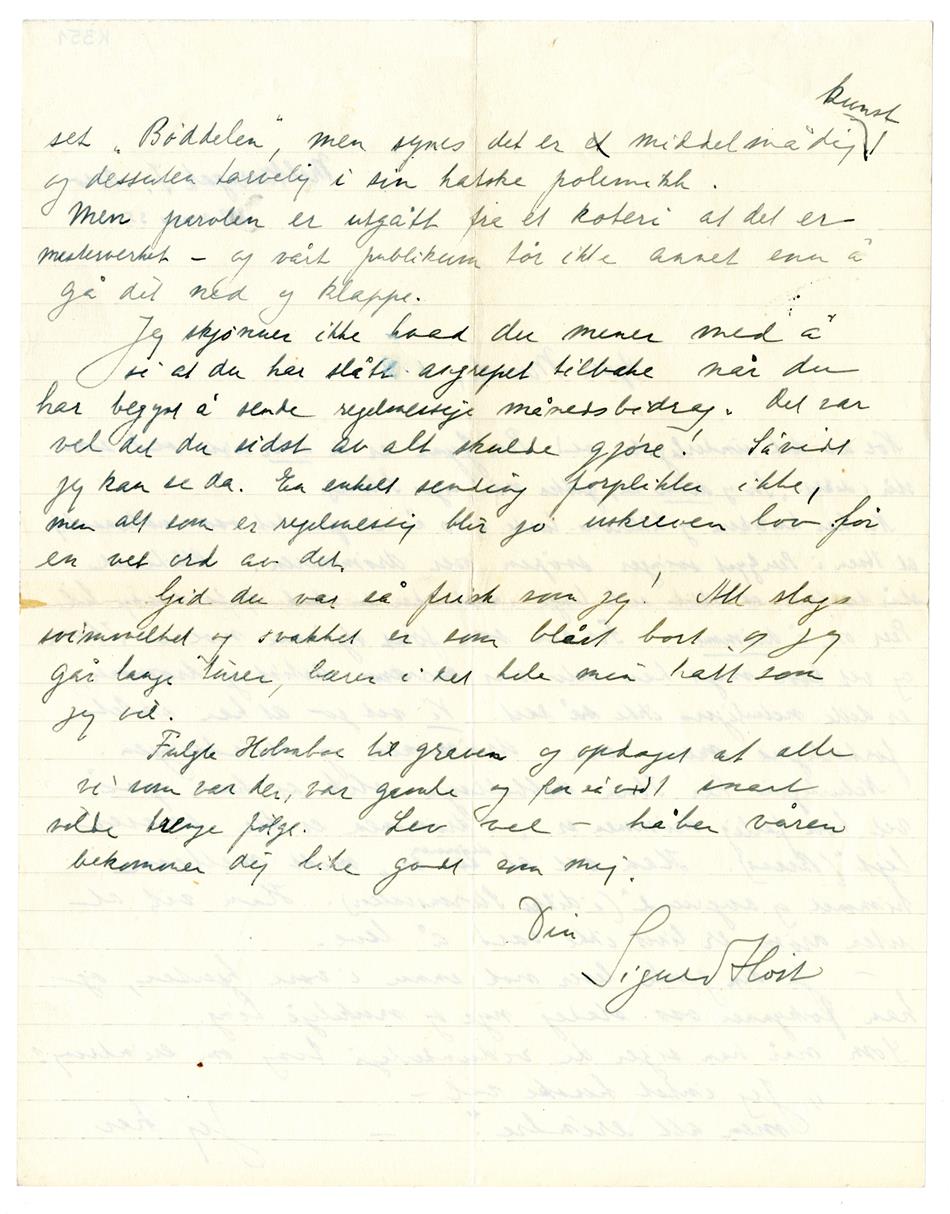 kunst
set "Bøddelen", men synes det er middelmådig
og dessuten tarvelig i sin hatske polemikk.
Men parolen er utgått fra et koteri at det er
mesterverket - og vårt publikum tør ikke annet enn å
gå dit ned og klappe.
Jeg skjønner ikke hvad du mener med å
si at du har slått angrepet tilbake når du
har begynt å sende regelmessige månedsbidrag. Det var
vel det du sidst av alt skulde gjøre! Såvidt
jeg kan se da. En enkelt sending forplikter ikke,
men alt som er regelmessig blir jo uskreven lov før
en vet ord av det.
Gid du var så frisk som jeg! All slags
svimmelhet og svakhet er som blåst bort og jeg
går lange turer, bærer i det hele min hatt som
jeg vil.
Fulgte Holmboe til graven og opdaget at alle
vi som var der, var gamle og forsåvidt snart
vilde trenge følge. Lev vel - håber våren
bekommer dig like godt som mig.
Din
Sigurd Høst